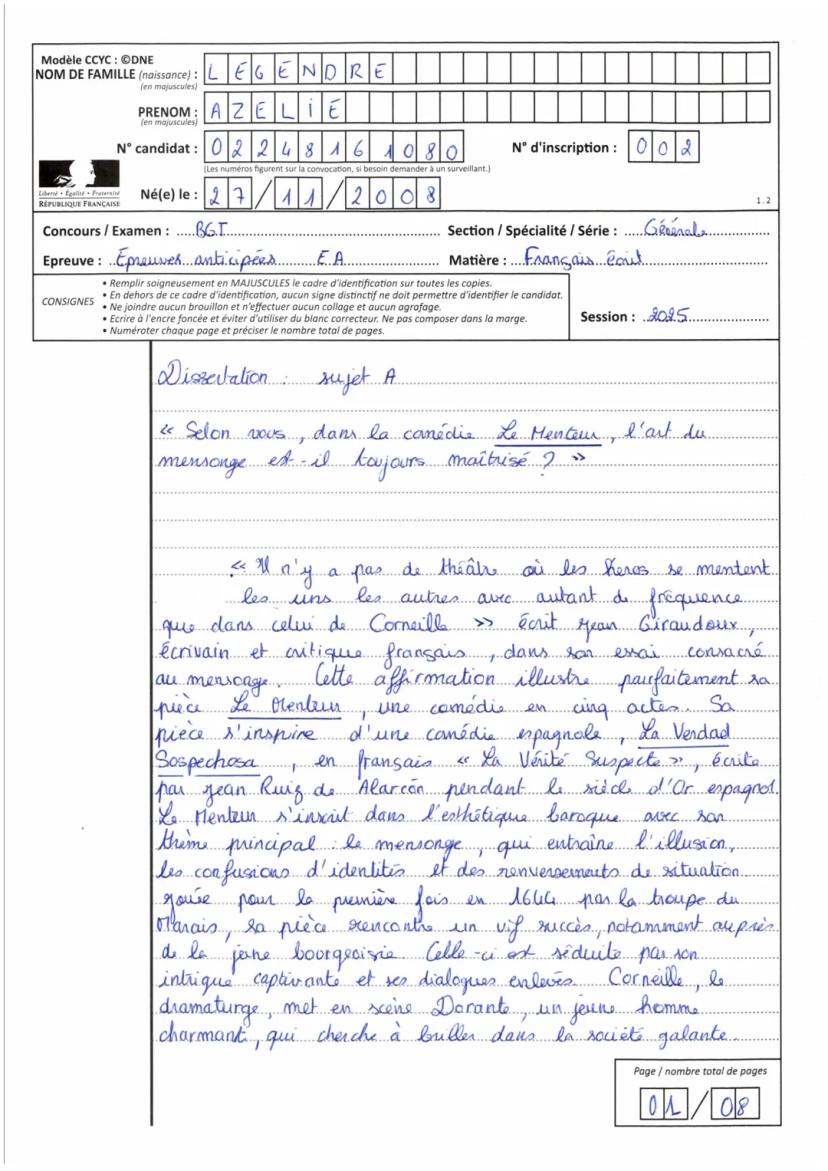 Modèle CCYC : ©DNE
NOM DE FAMILLE (naissance) : LEGENDRE
(en majuscules)
PRENOM : AZELIE
(en majuscules)
N° candidat : 02248161080 N° d'inscription : 002
(Les numéros figurent sur la convocation, si besoin demander à un surveillant.)
Liberté • Égalité • Fraternité
RÉPUBLIQUE FRANÇAISE
Né(e) le : 27/11/2008
1.2
Concours / Examen : BGT Section / Spécialité / Série : Générale
Epreuve : Épreuves anticipées EA Matière : Français écrit
CONSIGNES
• Remplir soigneusement en MAJUSCULES le cadre d'identification sur toutes les copies.
• En dehors de ce cadre d'identification, aucun signe distinctif ne doit permettre d'identifier le candidat.
• Ne joindre aucun brouillon et n'effectuer aucun collage et aucun agrafage.
• Ecrire à l'encre foncée et éviter d'utiliser du blanc correcteur. Ne pas composer dans la marge.
• Numéroter chaque page et préciser le nombre total de pages.
Session : 2025
Dissertation : sujet A
« Selon vous, dans la comédie Le Menteur, l'art du
mensonge est-il toujours maîtrisé ? »
« Il n'y a pas de théâtre où les heros se mentent
les uns les autres avec autant de fréquence
que dans celui de Corneille » écrit Jean Giraudoux,
écrivain et critique français, dans son essai consacré
au mensonge. Cette affirmation illustre parfaitement sa
pièce Le Menteur, une comédie en cinq actes. Sa
pièce s'inspire d'une comédie espagnole, La Verdad
Sospechosa, en français « La Vérité Suspecte », écrite
par Jean Ruiz de Alarcón pendant le siècle d'Or espagnol.
Le Menteur s'inscrit dans l'esthétique baroque avec son
thème principal : le mensonge, qui entraîne l'illusion,
les confusions d'identités et des renversements de situation
Jouée pour la première fois en 1644 par la troupe du
Marais, sa pièce rencontre un vif succès, notamment auprès
de la jeune bourgeoisie. Celle-ci est séduite par son
intrigue captivante et ses dialogues enlevés. Corneille, le
dramaturge, met en scène Dorante, un jeune homme
charmant, qui cherche à briller dans la société galante.
Page / nombre total de pages
01/08